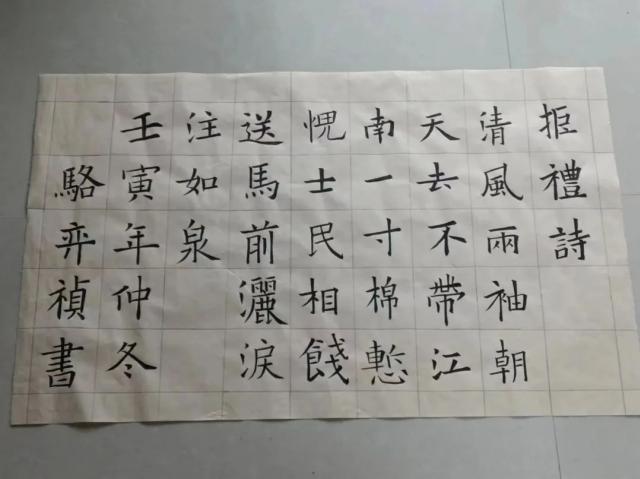 拒禮詩
清風兩袖朝
天去不帶江
南一寸棉慙
愧士民相餞
送馬前灑淚
注如泉
壬寅年仲冬
駱弈禎書